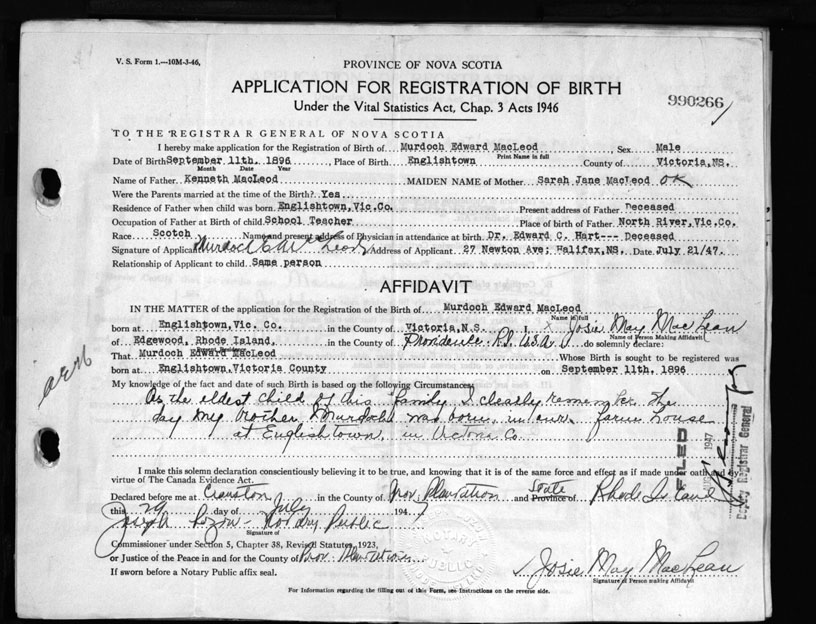 V. S. Form 1.—10M-3-46,
PROVINCE OF NOVA SCOTIA
APPLICATION FOR REGISTRATION OF BIRTH
Under the Vital Statistics Act, Chap. 3 Acts 1946
990266
TO THE REGISTRAR GENERAL OF NOVA SCOTIA
I hereby make application for the Registration of Birth of Murdoch Edward MacLeod Sex Male
Print Name in full
Date of Birth September 11th. 1896 , Place of Birth Englishtown County of Victoria,NS.
Month Date Year
Name of Father Kenneth MacLeod MAIDEN NAME of Mother Sarah Jane MacLeod OK
Were the Parents married at the time of the Birth? Yes
Residence of Father when child was born Englishtown,Vic.Co. Present address of Father Deceased
Occupation of Father at Birth of child School Teacher Place of birth of Father North River,Vic.Co.
Race Scotch Name and present address of Physician in attendance at birth Dr. Edward C. Hart--- Deceased
Signature of Applicant Murdoch E McLeod Address of Applicant 27 Newton Ave; Halifax,NS. Date July 21/47.
Relationship of Applicant to child Same person
AFFIDAVIT
IN THE MATTER of the application for the Registration of the Birth of Murdoch Edward MacLeod
Name in full
born at Englishtown,Vic. Co. in the County of Victoria,N.S. I, x Josie May MacLean
Name of Person Making Affidavit
of Edgewood, Rhode Island, in the County of Providence R.I. U.S.A. do solemnly declare:
Present Residence
That Murdoch Edward MacLeod Whose Birth is sought to be registered was
born at Englishtown,Victoria County on September 11th. 1896
My knowledge of the fact and date of such Birth is based on the following Circumstances:
As the eldest child of this family I clearly remember the
day my brother Murdoch was born, in our farm house
at Englishtown, in Victoria Co
I make this solemn declaration conscientiously believing it to be true, and knowing that it is of the same force and effect as if made under oath and by
virtue of The Canada Evidence Act.
Declared before me at Cranston in the County of Prov. Plantation State and Province of Rhode Island
this 29 day of July 1947
Joseph Notary Public
Signature of
Commissioner under Section 5, Chapter 38, Revised Statutes, 1923,
or Justice of the Peace in and for the County of Prov. Plantations
If sworn before a Notary Public affix seal.
Josie May MacLean
Signature of Person making Affidavit
For Information regarding the filling out of this Form, see Instructions on the reverse side.
FILED
1947
Deputy Registrar General
NOTARY
PUBLIC